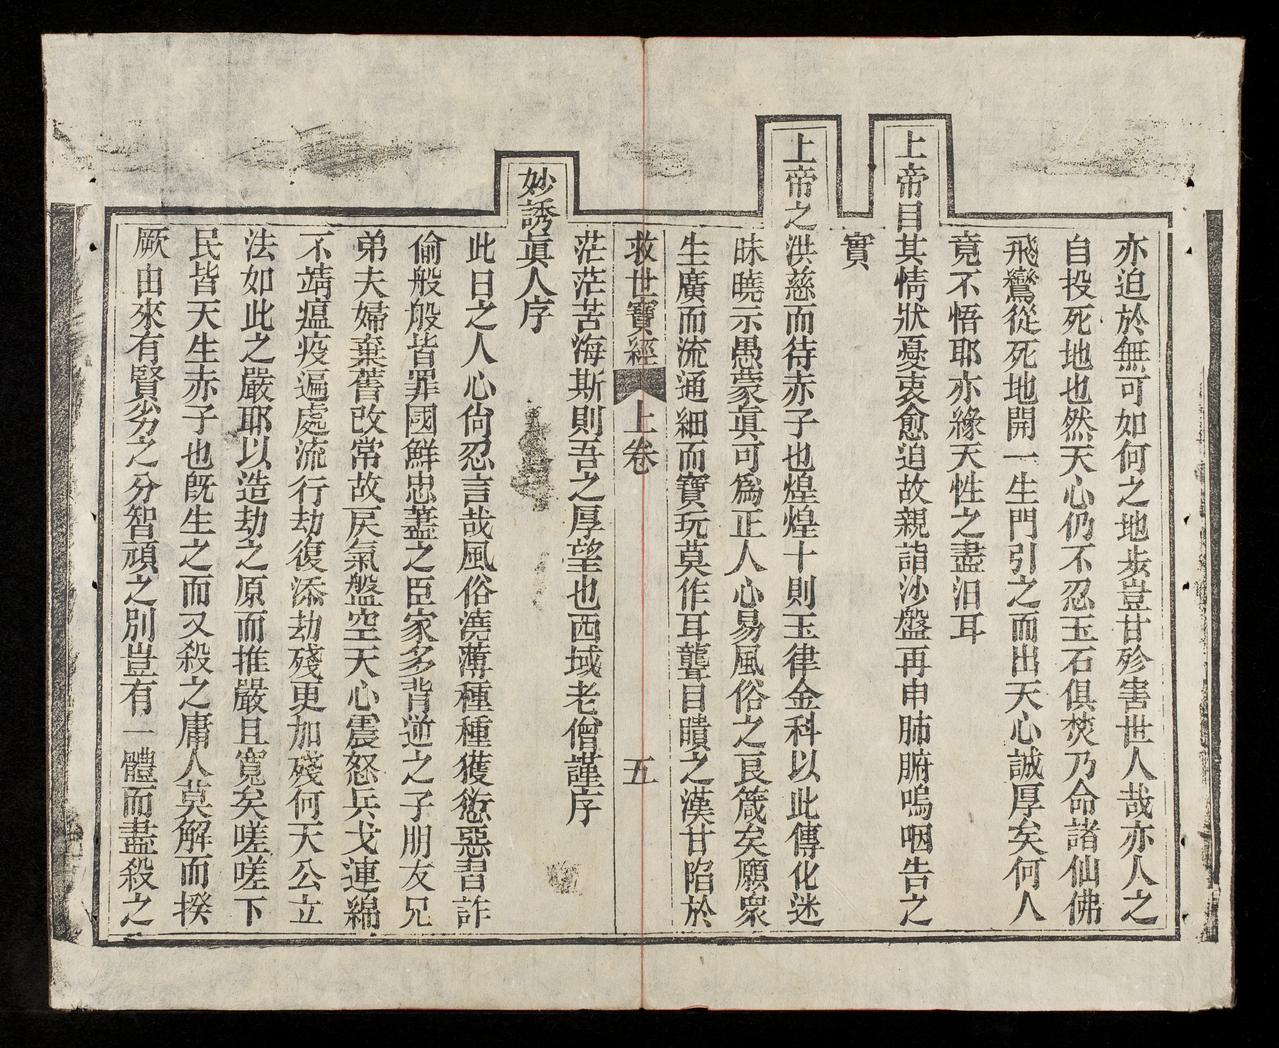 亦迫於無可如何之地步豈甘殄害世人哉亦人之
自投死地也然天心仍不忍玉石俱焚乃命諸仙佛
飛鸞從死地開一生門引之而出天心誠厚矣何人
竟不悟耶亦緣天性之盡汨耳
上帝目其情狀憂衷愈迫故親詣沙盤再申肺腑嗚咽告之
實
上帝之洪慈而待赤子也煌煌十則玉律金科以此傳化迷
昧曉示愚蒙眞可爲正人心易風俗之良箴矣願衆
生廣而流通細而寶玩莫作耳聾目瞶之漢甘陷於
救世寶經 上卷 五
茫茫苦海斯則吾之厚望也西域老僧謹序
妙誘眞人序
此日之人心尙忍言哉風俗澆薄種種獲愆惡習詐
偷般般皆罪國鮮忠藎之臣家多背逆之子朋友兄
弟夫婦棄舊改常故戾氣盤空天心震怒兵戈連綿
不靖瘟疫遍處流行劫復添劫殘更加殘何天公立
法如此之嚴耶以造劫之原而推嚴且寬矣嗟嗟下
民皆天生赤子也旣生之而又殺之庸人莫解而揆
厥由來有賢劣之分智頑之別豈有一體而盡殺之